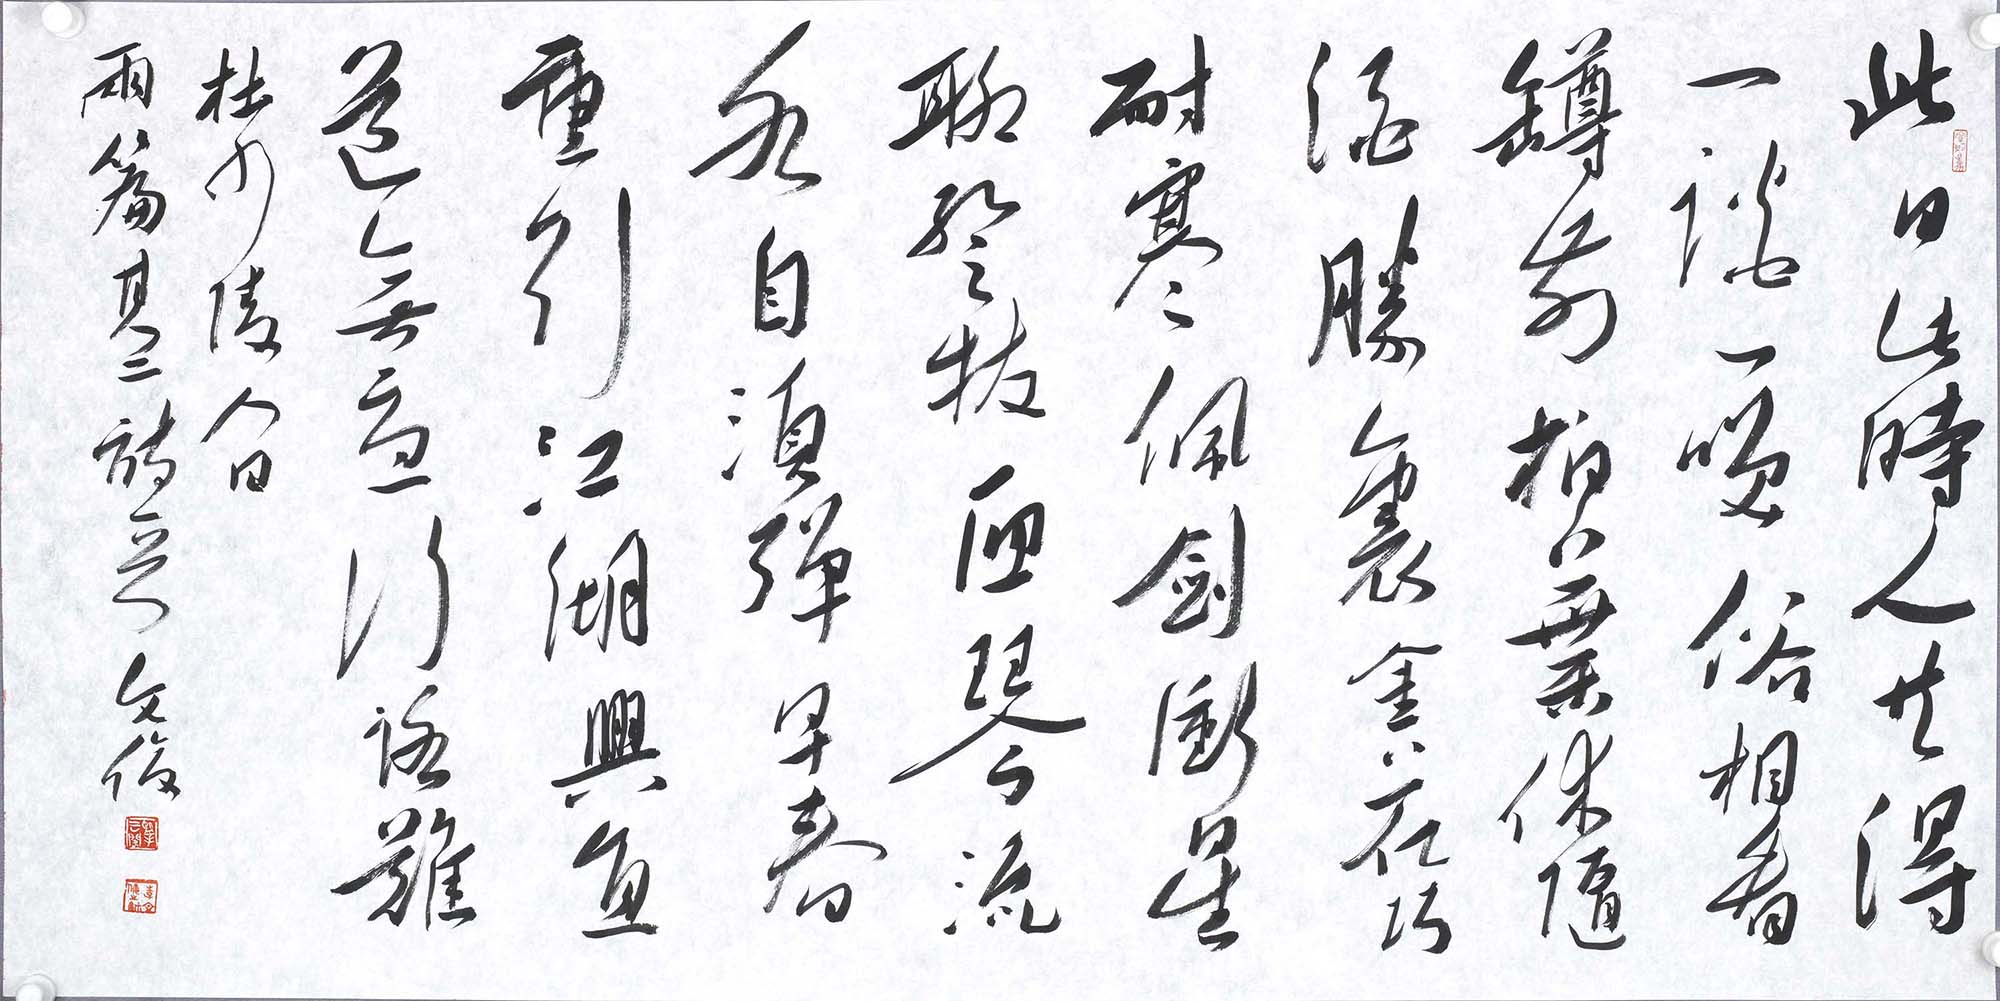 此日此時人共得
一談一咲俗相看
罇前柏葉休隨
酒勝裏金花巧
耐寒佩劍衝星
聊暫拔匣琴流
水自須彈早春
重引江湖興直
道無憂行路難
杜少陵人日
兩篇其二詩 文俊